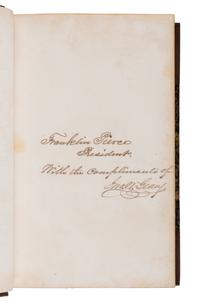 Franklin Pierce
President.
With the compliments of
Jno. W. Geary